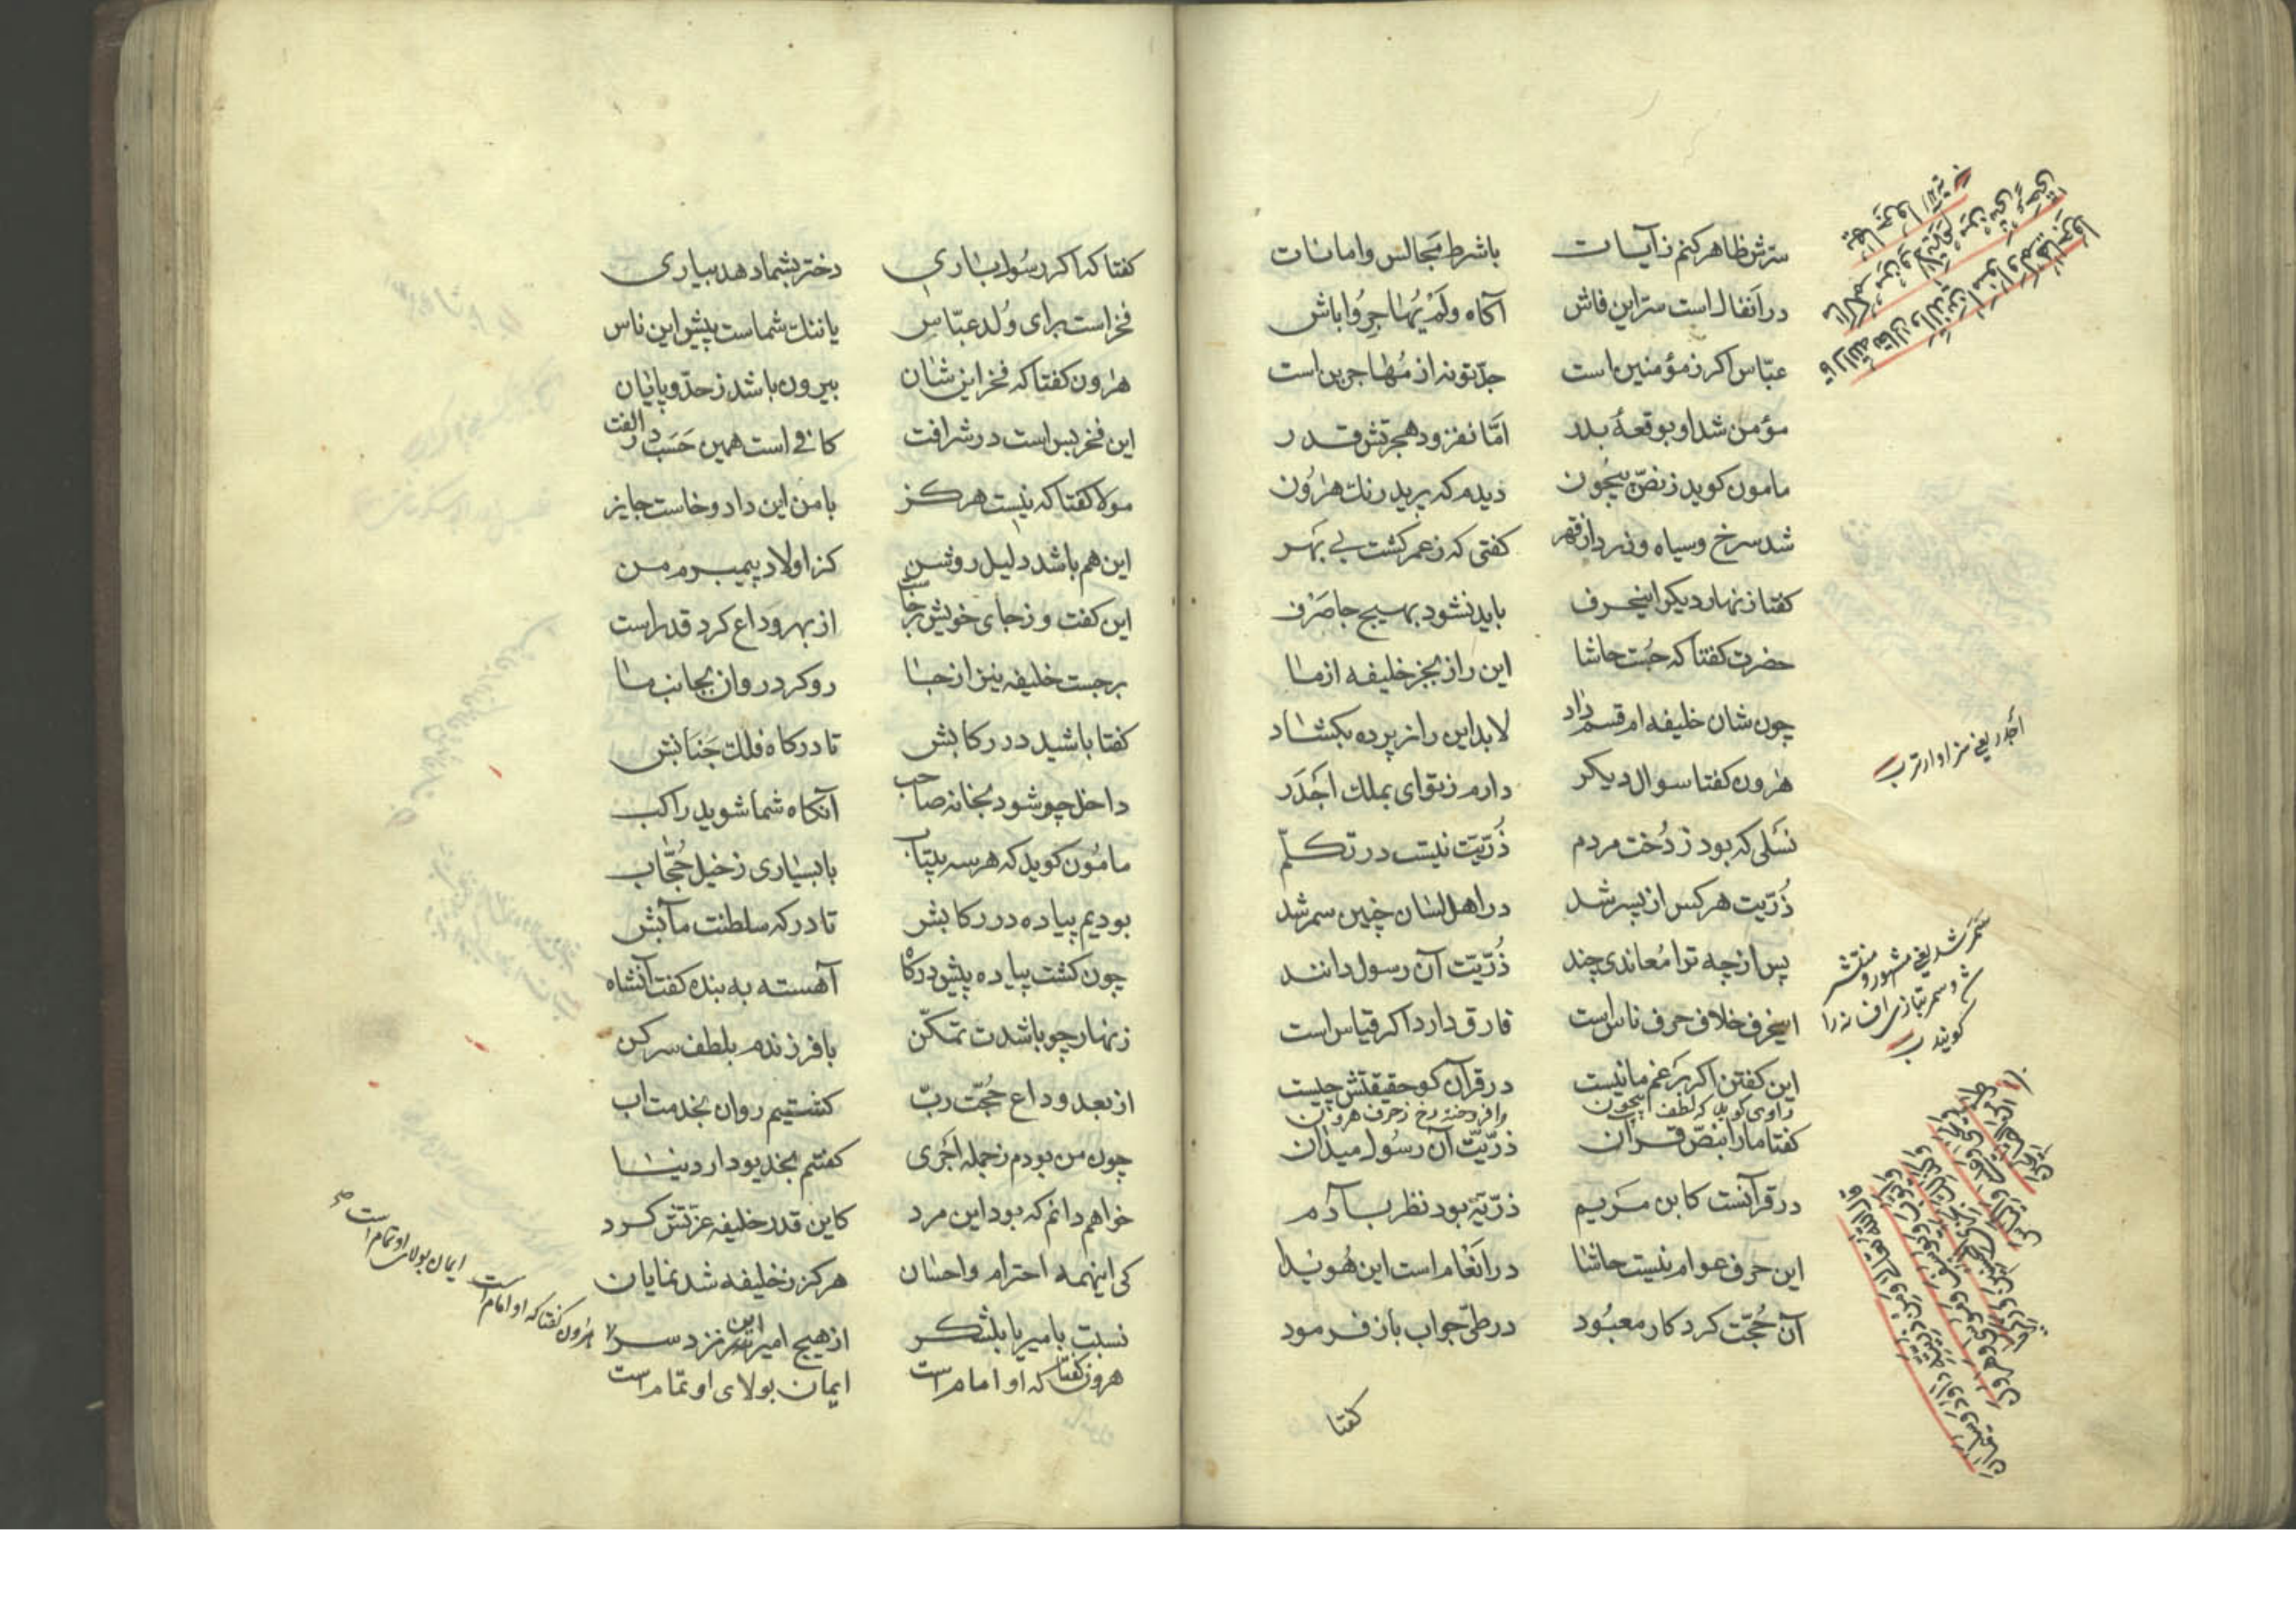 سرّش ظاهر کنم ز آیات باشرط مجالس وامانات
در اَنفال است سرّ این فاش آکاه ولَمْ یُهاجِرُوا باش
عبّاس اکر ز مؤمنین است جدّ تو نه از مُهاجرین است
مؤمن شد او بوقعهٔ بدر امّا نفزود هجرتش قدر
مامون کوید ز نصّ بیچون دیدم که پرید رنك هرٰون
شد سرخ وسیاه وزرد از قهر کفتی که ز عمر کشت بی بهر
کفتا زنهار دیکر اینحرف باید نشود بهیچ جا صَرْف
حضرت کفتا که جُست حاشا این راز بجز خلیفه از ما
چون شان خلیفه ام قسم داد لابد این راز پرده بکشاد
هرٰون کفتا سوال دیکر دارم ز تو ای بملك اَجدَر
نَسلی که بود ز دُخت مردم ذُرّیّت نیست در تکلّم
ذُرّیت هرکس از پسر شد در اهل لسان چنین سمر شد
پس از چه ترا مُعاندی چند ذُرّیّت آن رسول دانند
اینحرف خلاف حرف ناس است فارق دارد اکر قیاس است
این کفتن اکر بزعم ما نیست در قرآن کو حقیقتش چیست
راوی کوید که لطف بیچون وافروخته رخ ز حرف هرون
کفتا ما را بنصّ قرآن ذرّیّت آن رسول میدان
در قرآنست کابن مَریم ذرّیّه بود نظر بآدم
این حرف عوام نیست حاشا در اَنعام است این هُویدا
آن حُجّت کردکار معبُود در طیّ جواب باز فرمود
کفتا
اَجدر یعنی سزاوارتر ب
سَمَر شد یعنی مشهور و منتشر
شد و سمر بتازی افسانه را
کویند ب
کفتا که اکر رسُول باری دختر بشما دهد بیاری
فخر است برای وُلد عبّاس یا ننك شماست پیش این ناس
هرٰون کفتا که فخر این شان بیرون باشد ز حدّ و پایان
این فخر بس است در شرافت کافی است همین حَسَب در الفت
مولا کفتا که نیست هرکز با من این داد و خاست جایز
این هم باشد دلیل روشن کز اولاد پیمبرم من
این کفت و ز جای خویش برخاست از بهر وَداع کرد قد راست
برجست خلیفه نیز از جا رو کرد روان بجانب ما
کفتا باشید در رکابش تا درکاه فلك جَنابش
داخل چو شود بخانه صاحب آنکاه شما شوید راکب
مامُون کوید که هر سه بیتاب با بسیاری ز خیل حُجّاب
بودیم پیاده در رکابش تا درکه سلطنت مآبش
چون کشت پیاده پیش درکاه آهسته به بنده کفت آنشاه
زنهار چو باشدت تمکّن با فرزندم بلطف سرکن
از بعد وداع حُجّت ربّ کشتیم روان بخدمت اب
چون من بودم ز جمله اَجری کفتم بخدیو دار دینا
خواهم دانم که بود این مرد کاین قدر خلیفه عزّتش کرد
کی اینهمه احترام واحسان هرکز ز خلیفه شد نمایان
نسبت بامیر یا بلشکر از هیچ امیر این نزد سر
هرون کفتا که او امام است ایمان بولای او تمام است
هرٰون کفتا که او امام است ایمان بولای او تمام است صح